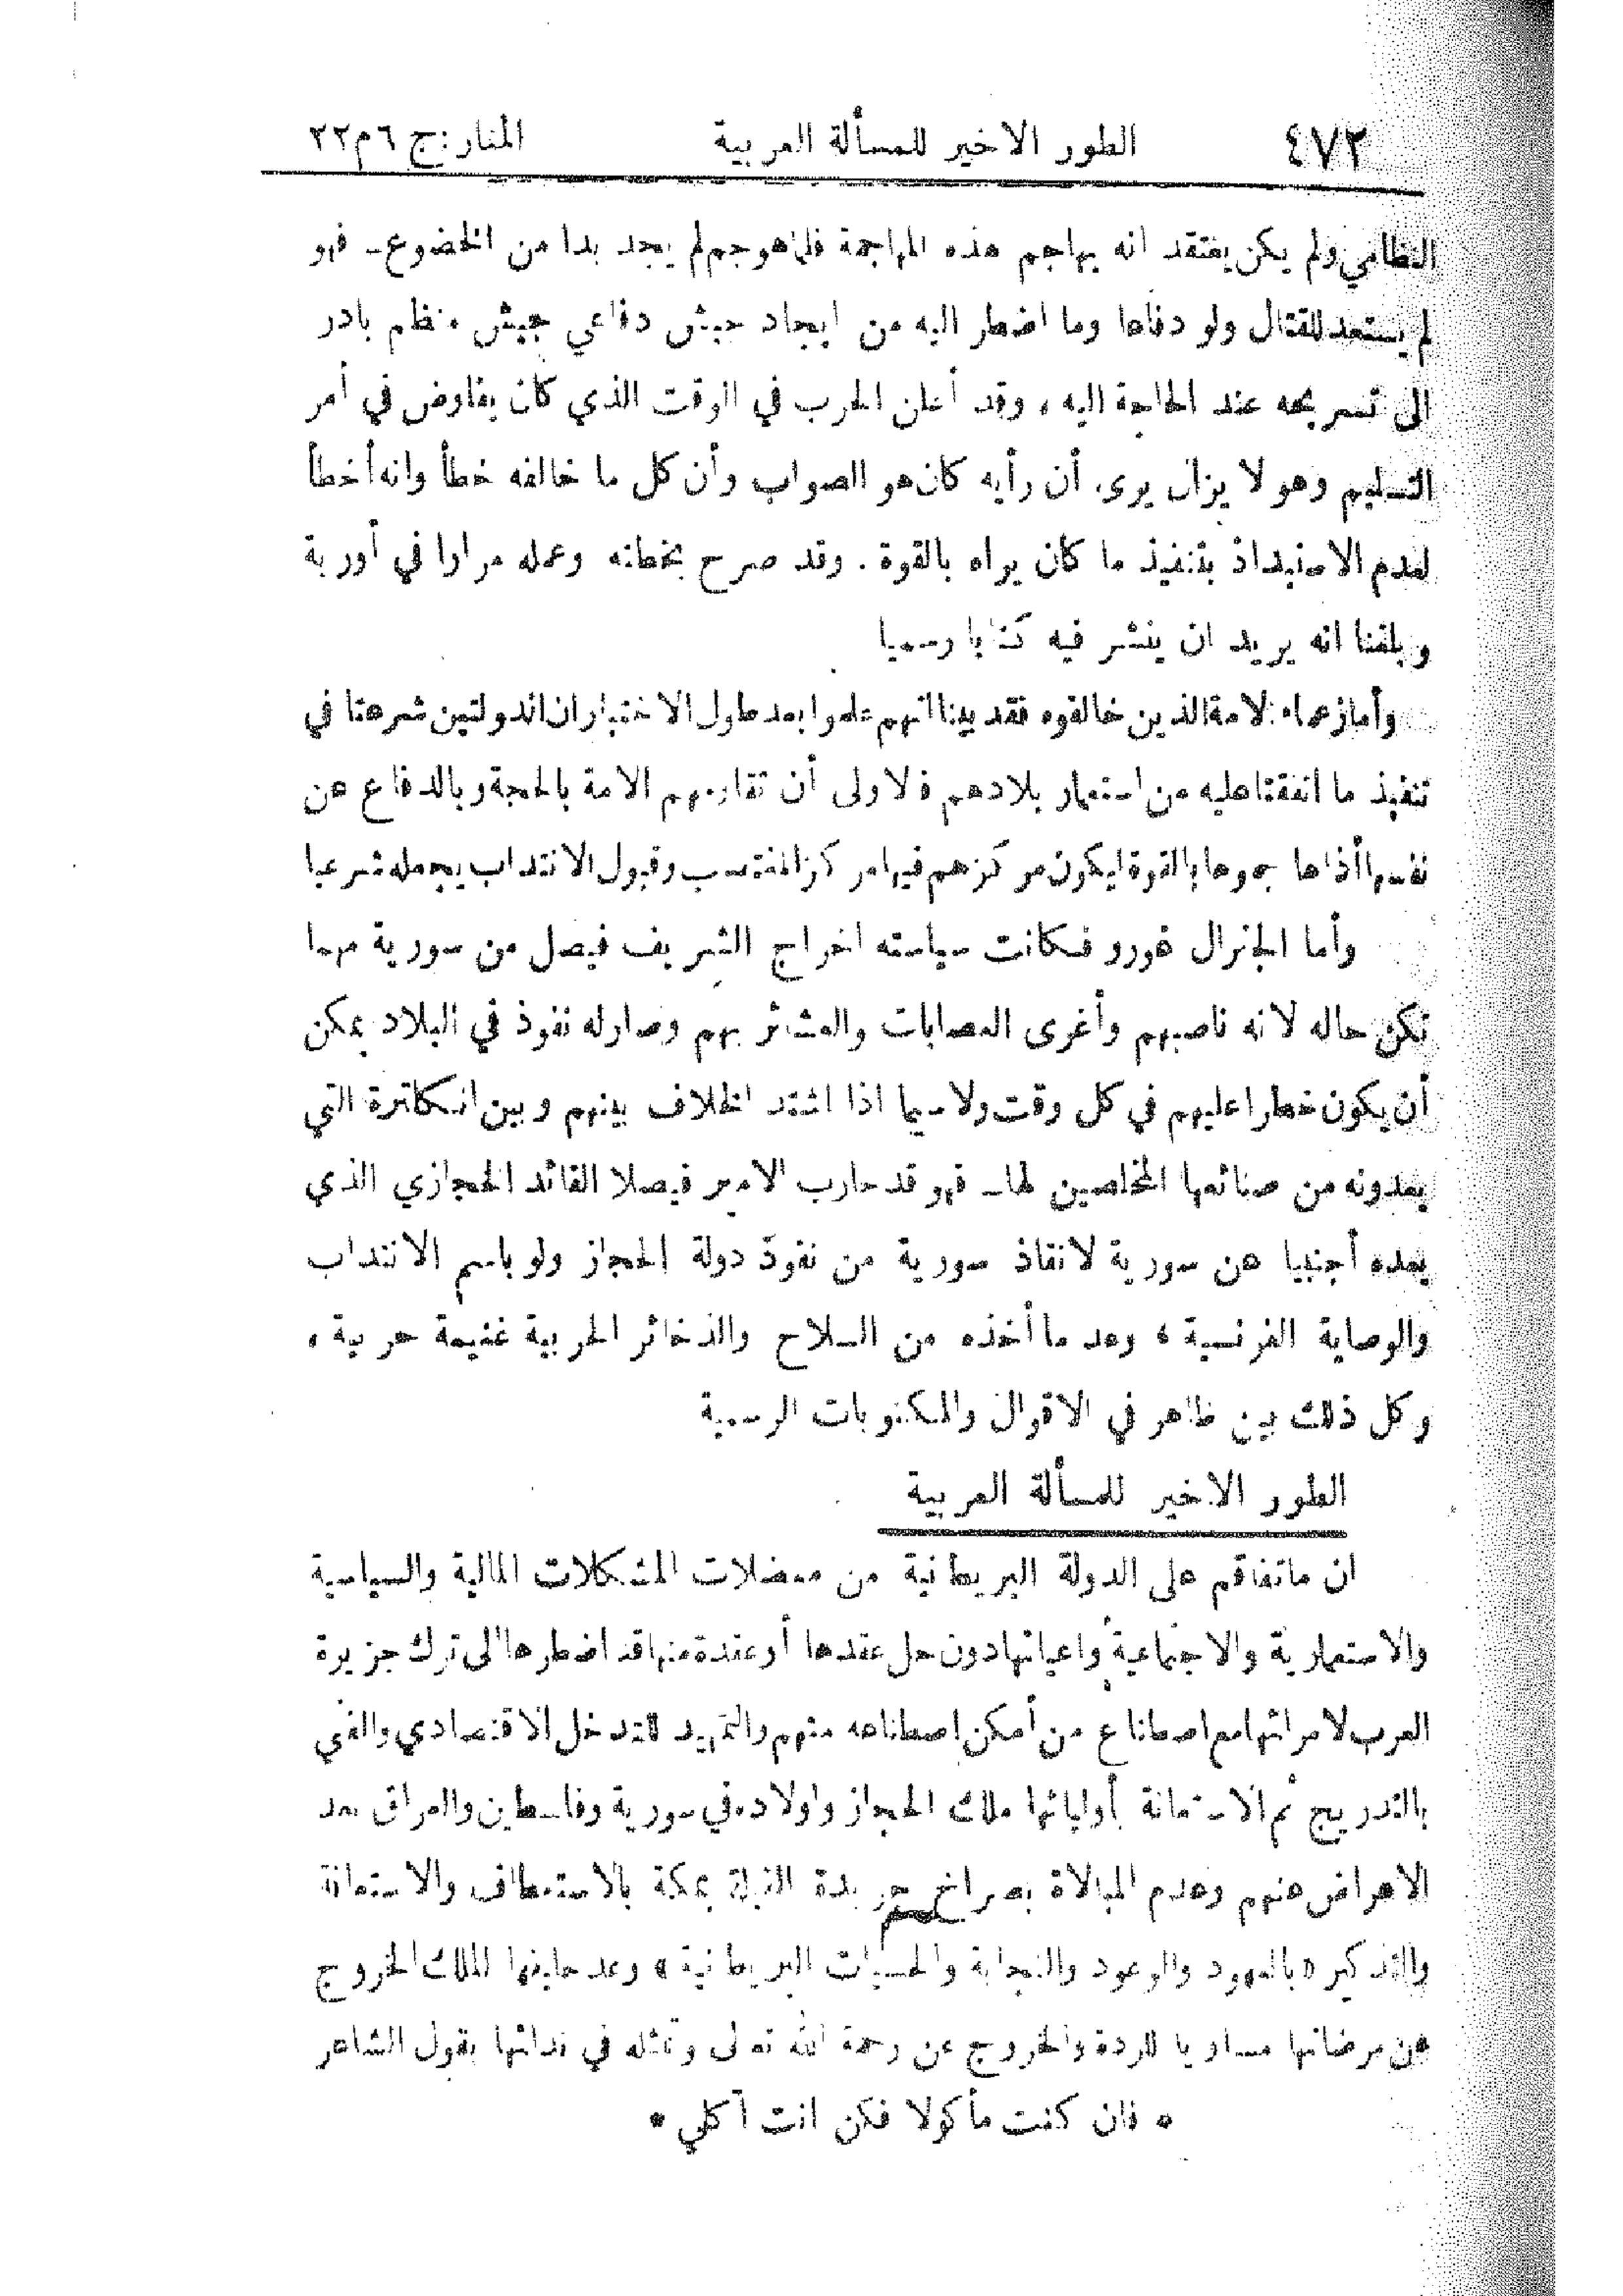 ٤٧٢ الطور الاخير للمسألة العربية المنار: ج ٦ م ٢٢
النظامي ولم يكن يعتقد انه يهاجم هذه المهاجمة فلما هوجم لم يجد بدا من الخضوع ــ فهو
لم يستعد للقتال ولو دفاعا وما اضطر اليه من ايجاد جيش دفاعي جيش منظم بادر
الى تسريحه عند الحاجة اليه ، وقد أعلن الحرب في الوقت الذي كان يفاوض في أمر
التسليم وهو لا يزال يرى أن رأيه كان هو الصواب وأن كل ما خالفه خطأ وانه أخطأ
لعدم الاستبداد بتنفيذ ما كان يراه بالقوة . وقد صرح بخطئه وعمله مرارا في أوربة
وبلغنا انه يريد ان ينشر فيه كتابا رسميا
وأما زعماء الامة الذين خالفوه فقد بينا انهم علموا بعد طول الاختبار ان الدولتين شرعتا في
تنفيذ ما اتفقتا عليه من استعمار بلادهم فالاولى أن تقاومهم الامة بالحجة وبالدفاع عن
نفسها اذا هاجموها بالقوة ليكون مركزهم فيها مركز المغتصب وقبول الانتداب يجعله شرعيا
وأما الجنرال غورو فكانت سياسته اخراج الشريف فيصل من سورية مهما
تكن حاله لانه ناصبهم وأغرى العصابات والعشائر بهم وصار له نفوذ في البلاد يمكن
أن يكون خطرا عليهم في كل وقت ولا سيما اذا اشتد الخلاف بينهم وبين انكلترة التي
يعدونه من صنائعها المخلصين لها ــ فهو قد حارب الامير فيصلا القائد الحجازي الذي
يعده أجنبيا عن سورية لانقاذ سورية من نفوذ دولة الحجاز ولو باسم الانتداب
والوصاية الفرنسية ، وعد ما أخذه من السلاح والذخائر الحربية غنيمة حربية ،
وكل ذلك بين ظاهر في الاقوال والمكتوبات الرسمية
الطور الاخير للمسألة العربية
ان ما تفاقم على الدولة البريطانية من معضلات المشكلات المالية والسياسية
والاستعمارية والاجتماعية واعيائها دون حل عقدها أو عقدة منها قد اضطرها الى ترك جزيرة
العرب لامرائها مع اصطناع من أمكن اصطناعه منهم والتمهيد للتدخل الاقتصادي والفني
بالتدريج ثم الاستعانة بأوليائها ملك الحجاز واولاده في سورية وفلسطين والعراق بعد
الاعراض عنهم وعدم المبالاة بصراخ جريدة القبلة بمكة بالاستعطاف والاستعانة
والتذكير «بالعهود والوعود والنجابة والحسيات البريطانية» وعد حليفها الملك الخروج
عن مرضاتها مساويا للردة والخروج عن رحمة الله تعالى وتمثله في ندائها بقول الشاعر
* فان كنت مأكولا فكن انت آكلي *